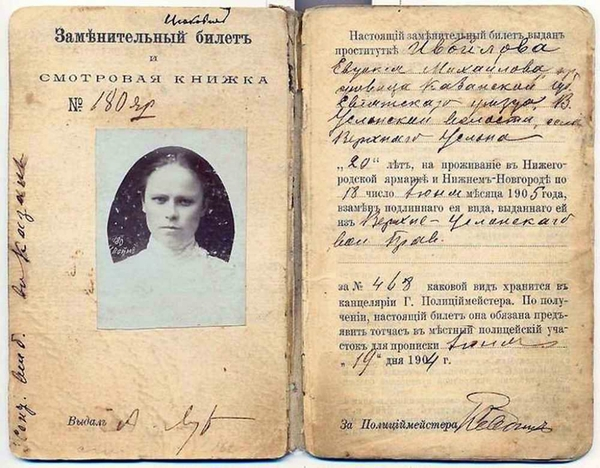 Замѣнительный билетъ
и
СМОТРОВАЯ КНИЖКА
№ 180 яр
Выдалъ
Настоящій замѣнительный билетъ выданъ
проституткѣ
Михайлова
Казанской
уѣзда, В.
Услонской волости, села
Верхняго Услона
„20“ лѣтъ, на проживаніе въ Нижего-
родской ярмаркѣ и Нижнемъ-Новгородѣ по
18 число Іюня мѣсяца 1905 года,
взамѣнъ подлиннаго ея вида, выданнаго ей
изъ Верхне-Услонскаго
вол. Прав.
за № 468 каковой видъ хранится въ
канцеляріи Г. Полиціймейстера. По полу-
ченіи, настоящій билетъ она обязана предъ-
явить тотчасъ въ мѣстный полицейскій уча-
стокъ для прописки Іюня
„19“ дня 1904 г.
За Полиціймейстера